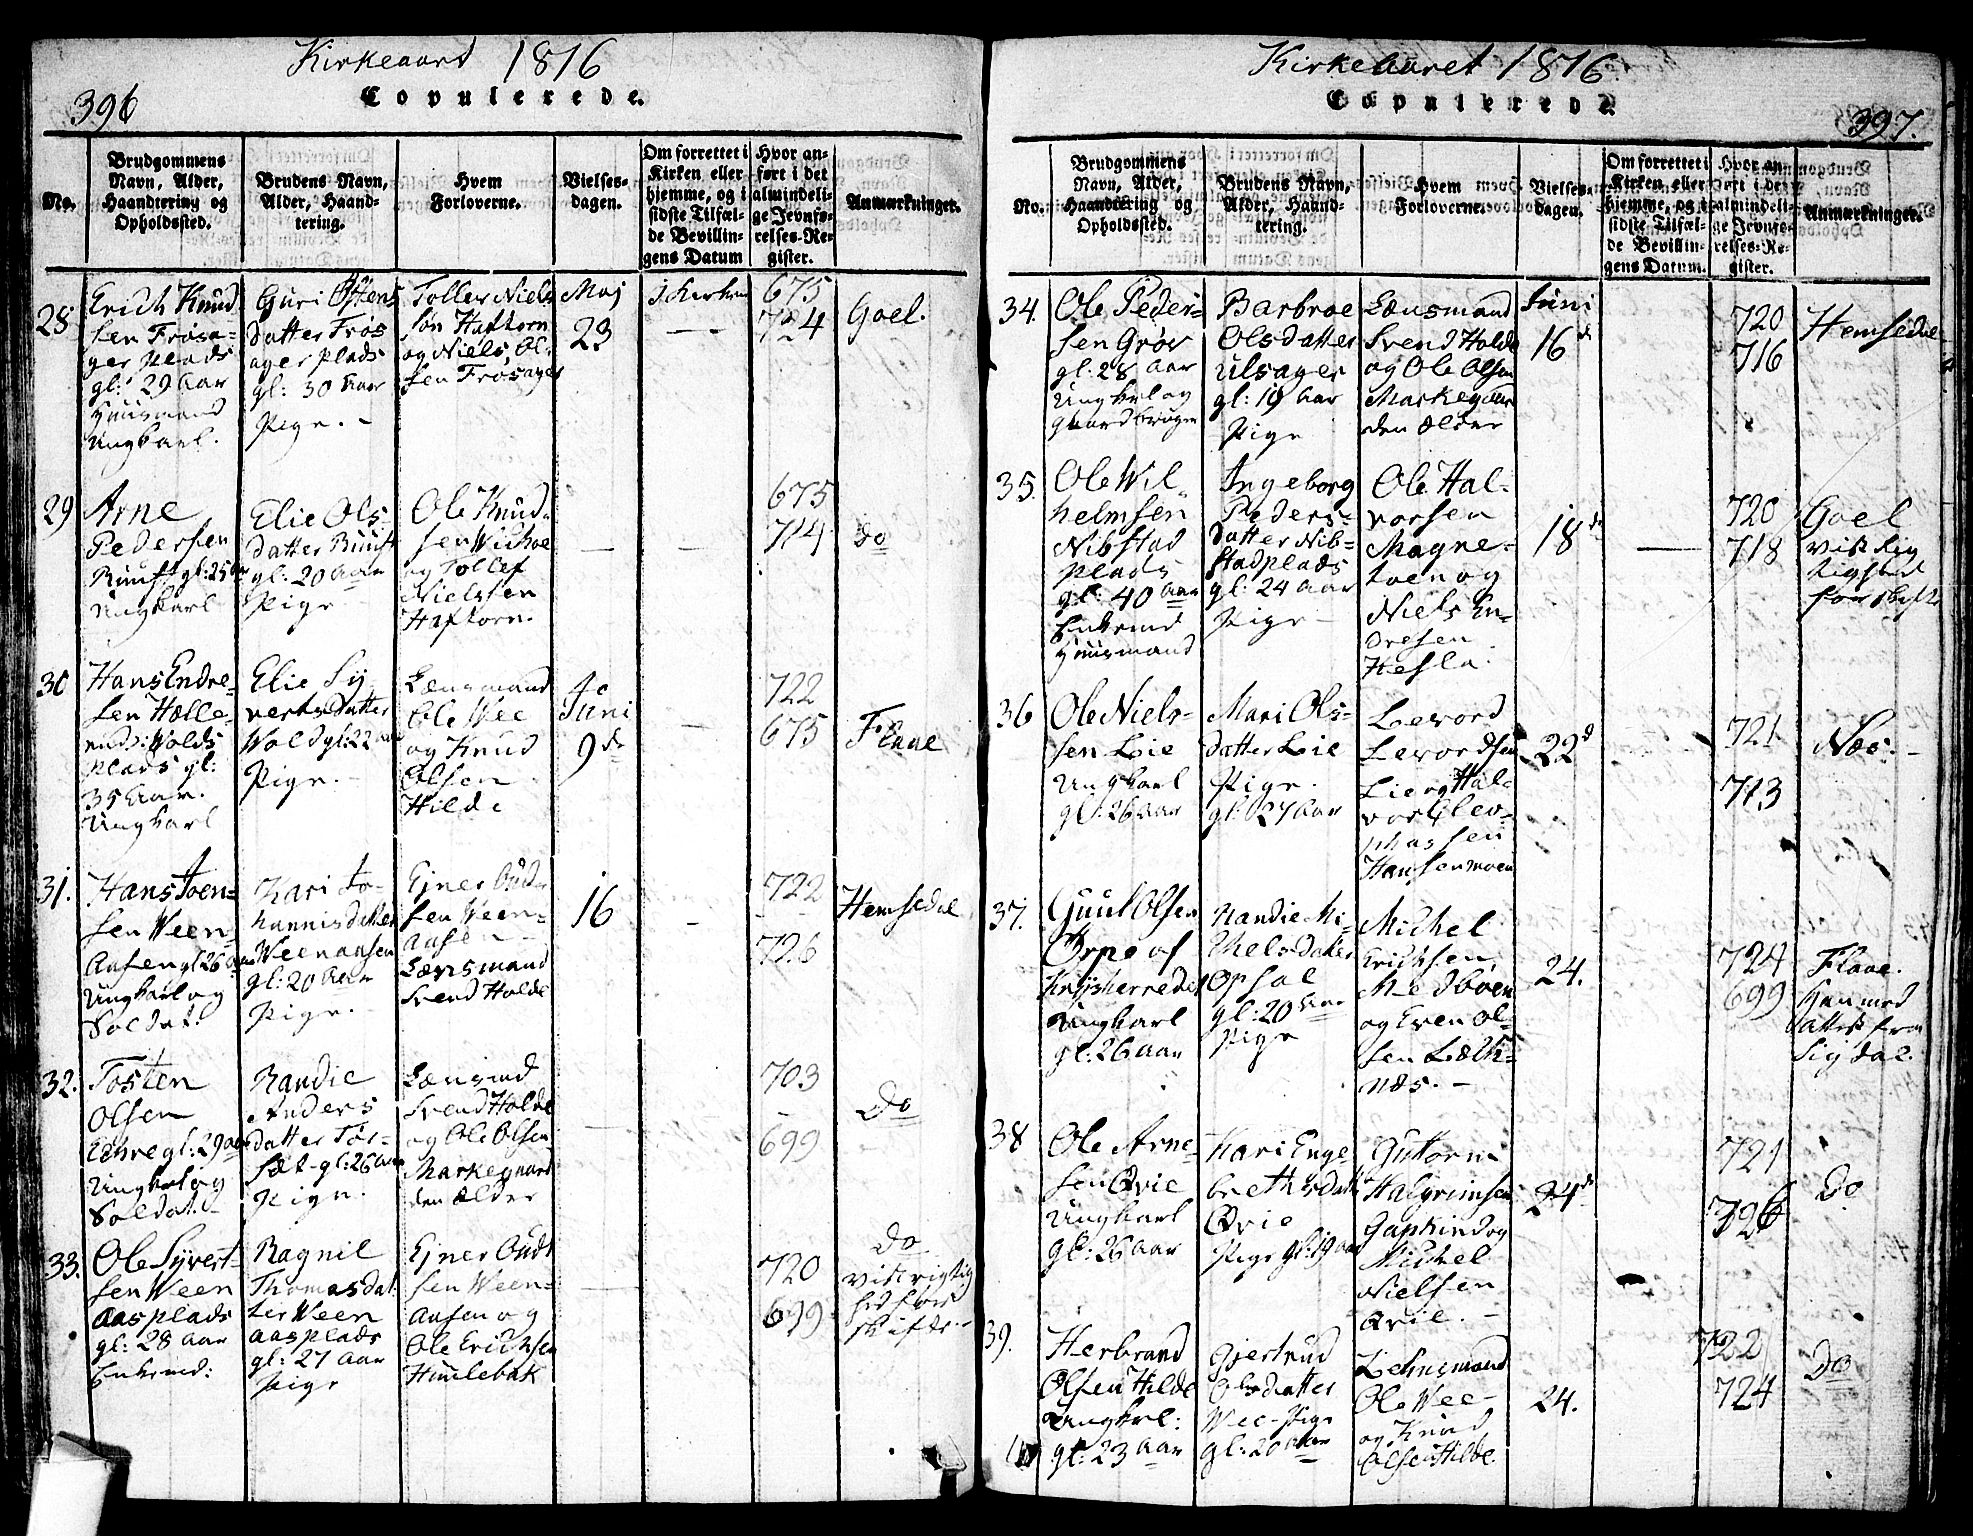 Kirkeaaret 1816
396
Copulerede.
No.
Brudgommens
Navn, Alder,
Haandtering og
Opholdssted.
Brudens Navn,
Alder, Haand-
tering.
Hvem
Forloverne.
Vielses-
dagen.
Om forrettet i
Kirken eller
hjemme, og i
sidste Tilfæl-
de Bevillin-
gens Datum
Hvor an-
ført i det
almindeli-
ge Jevnfø-
relses-Re-
gister.
Anmærkninger.
28
Erich Knud
sen Frøsa-
ger plads
gl: 29 Aar
Huusmand
Ungkarl.
Guri Østens
Datter Frøs
ager plads
gl: 30 Aar
Pige. -
Tollev Niels
søn Haftorn
og Niels Ol-
sen Frøsager
Maj
23
I Kirken
675
724
Goel.
29
Arne
Pedersen
Ruust gl: 25 Aar
Ungkarl
Elie Ols-
datter Ruust
gl: 20 Aar
Pige
Ole Knud-
sen
og Tollef
Nielssen
Haftorn.
675
714
do
30
Hans Endre-
sen Hølle-
rud: Wolds
plads gl:
35 Aar.
Ungkarl
Elie Sy
verts datter
Wold gl: 22 Aar
Pige.
Lænsmand
Ole Wee
og Knud
Olsen
Hilde
Juni
9de
722
675
Flaae
31.
Hans Toen-
sen Ween-
Aasen gl 26 Aar
Ungkarl og
Soldat.
Kari Jo-
hannisdatter
Weenaasen
gl: 20 Aar
Pige.
Ejner Gud-
sen Ween-
aasen
Lænsmand
Svend Holde
16
722
726
Hemsedal
32.
Tosten
Olsen
Echre gl: 29 Aar
Ungkarl og
Soldat.
Randie
Anders
datter Tør-
set gl: 26 Aar
Pige.
Lænsmd
Svend Holde
og Ole Olsen
Markegaard
den Ælder
703
699
Do
33.
Ole Syvert-
sen Ween
aasplads
gl: 28 Aar
Enkemd:
Ragnil
Thomasdat-
ter Ween
aasplads
gl: 27 Aar
Pige
Ejner Guds
sen Ween-
aasen og
Ole Erichsen
Huulebak
720
699
Do
vist rigtig
hed for
skifte -
Kirkeaaret 1816.
Copulerede.
397.
No.
Brudgommens
Navn, Alder,
Haandtering og
Opholdssted.
Brudens Navn,
Alder, Haand-
tering.
Hvem
Forloverne.
Vielses-
dagen.
Om forrettet i
Kirken eller
hjemme, og i
sidste Tilfæl-
de Bevillin-
gens Datum.
Hvor an-
ført i det
almindeli-
ge Jevnfø-
relses-Re-
gister.
Anmærkninger.
34.
Ole Peder-
sen Grøv
gl: 28 Aar
Ungkarl og
Gaardbruger
Barbroe
Olsdatter
Ulsager
gl: 19 Aar
Pige
Lænsmand
Svend Holde
og Ole Olsen
Markegaar
den Ælder
Juni
16d
720
716
Hemsedal
35.
Ole Wil-
helmsen
Nibstad
plads
gl: 40 Aar
Enkemd
Huusmand
Ingeborg
Peders-
datter Nib-
stadplads
gl: 24 Aar
Pige
Ole Hal-
vorsen
Magne-
toen og
Niels En-
dresen
Hesla.
18de
720
718
Goel
vist
36
Ole Niels-
sen Lie
Ungkarl
gl: 26 Aar
Mari Ols-
datter Lie
Pige.
gl: 27 Aar
Levord
Levordsen
Lie og Hal-
vor Elev-
phassen
Hansenmoen
22d
721
713
Næs. -
37.
Guul Olsen
Ørpe af
Ungkarl
gl: 26 Aar
Randie Mi-
chelsdatter
Opsal
gl: 20 Aar
Pige
Michel
Erichsen
Medboen
og Even Ol-
sen Læth-
næs. -
24.
724
699
Flaae.
Han med
attest fra
Sigdal.
38
Ole Arne-
sen Øvie
Ungkarl
gl: 26 Aar
Kari Enge-
brethsdatt
Øvie
Pige gl: 19 Aar
Guttorm
Halgrimsen
Gapkind og
Michel
Nielsen
Øvie. -
24de
721
726
Do
39.
Herbrand
Olsen Hilde
Ungkarl:
gl: 23 Aar
Gjertrud
Olsdatter
Wee - Pige
gl: 20 Aar
Lehnsmand
Ole Wee-
og Knud
Olsen Hilde
24.
722
724
Do